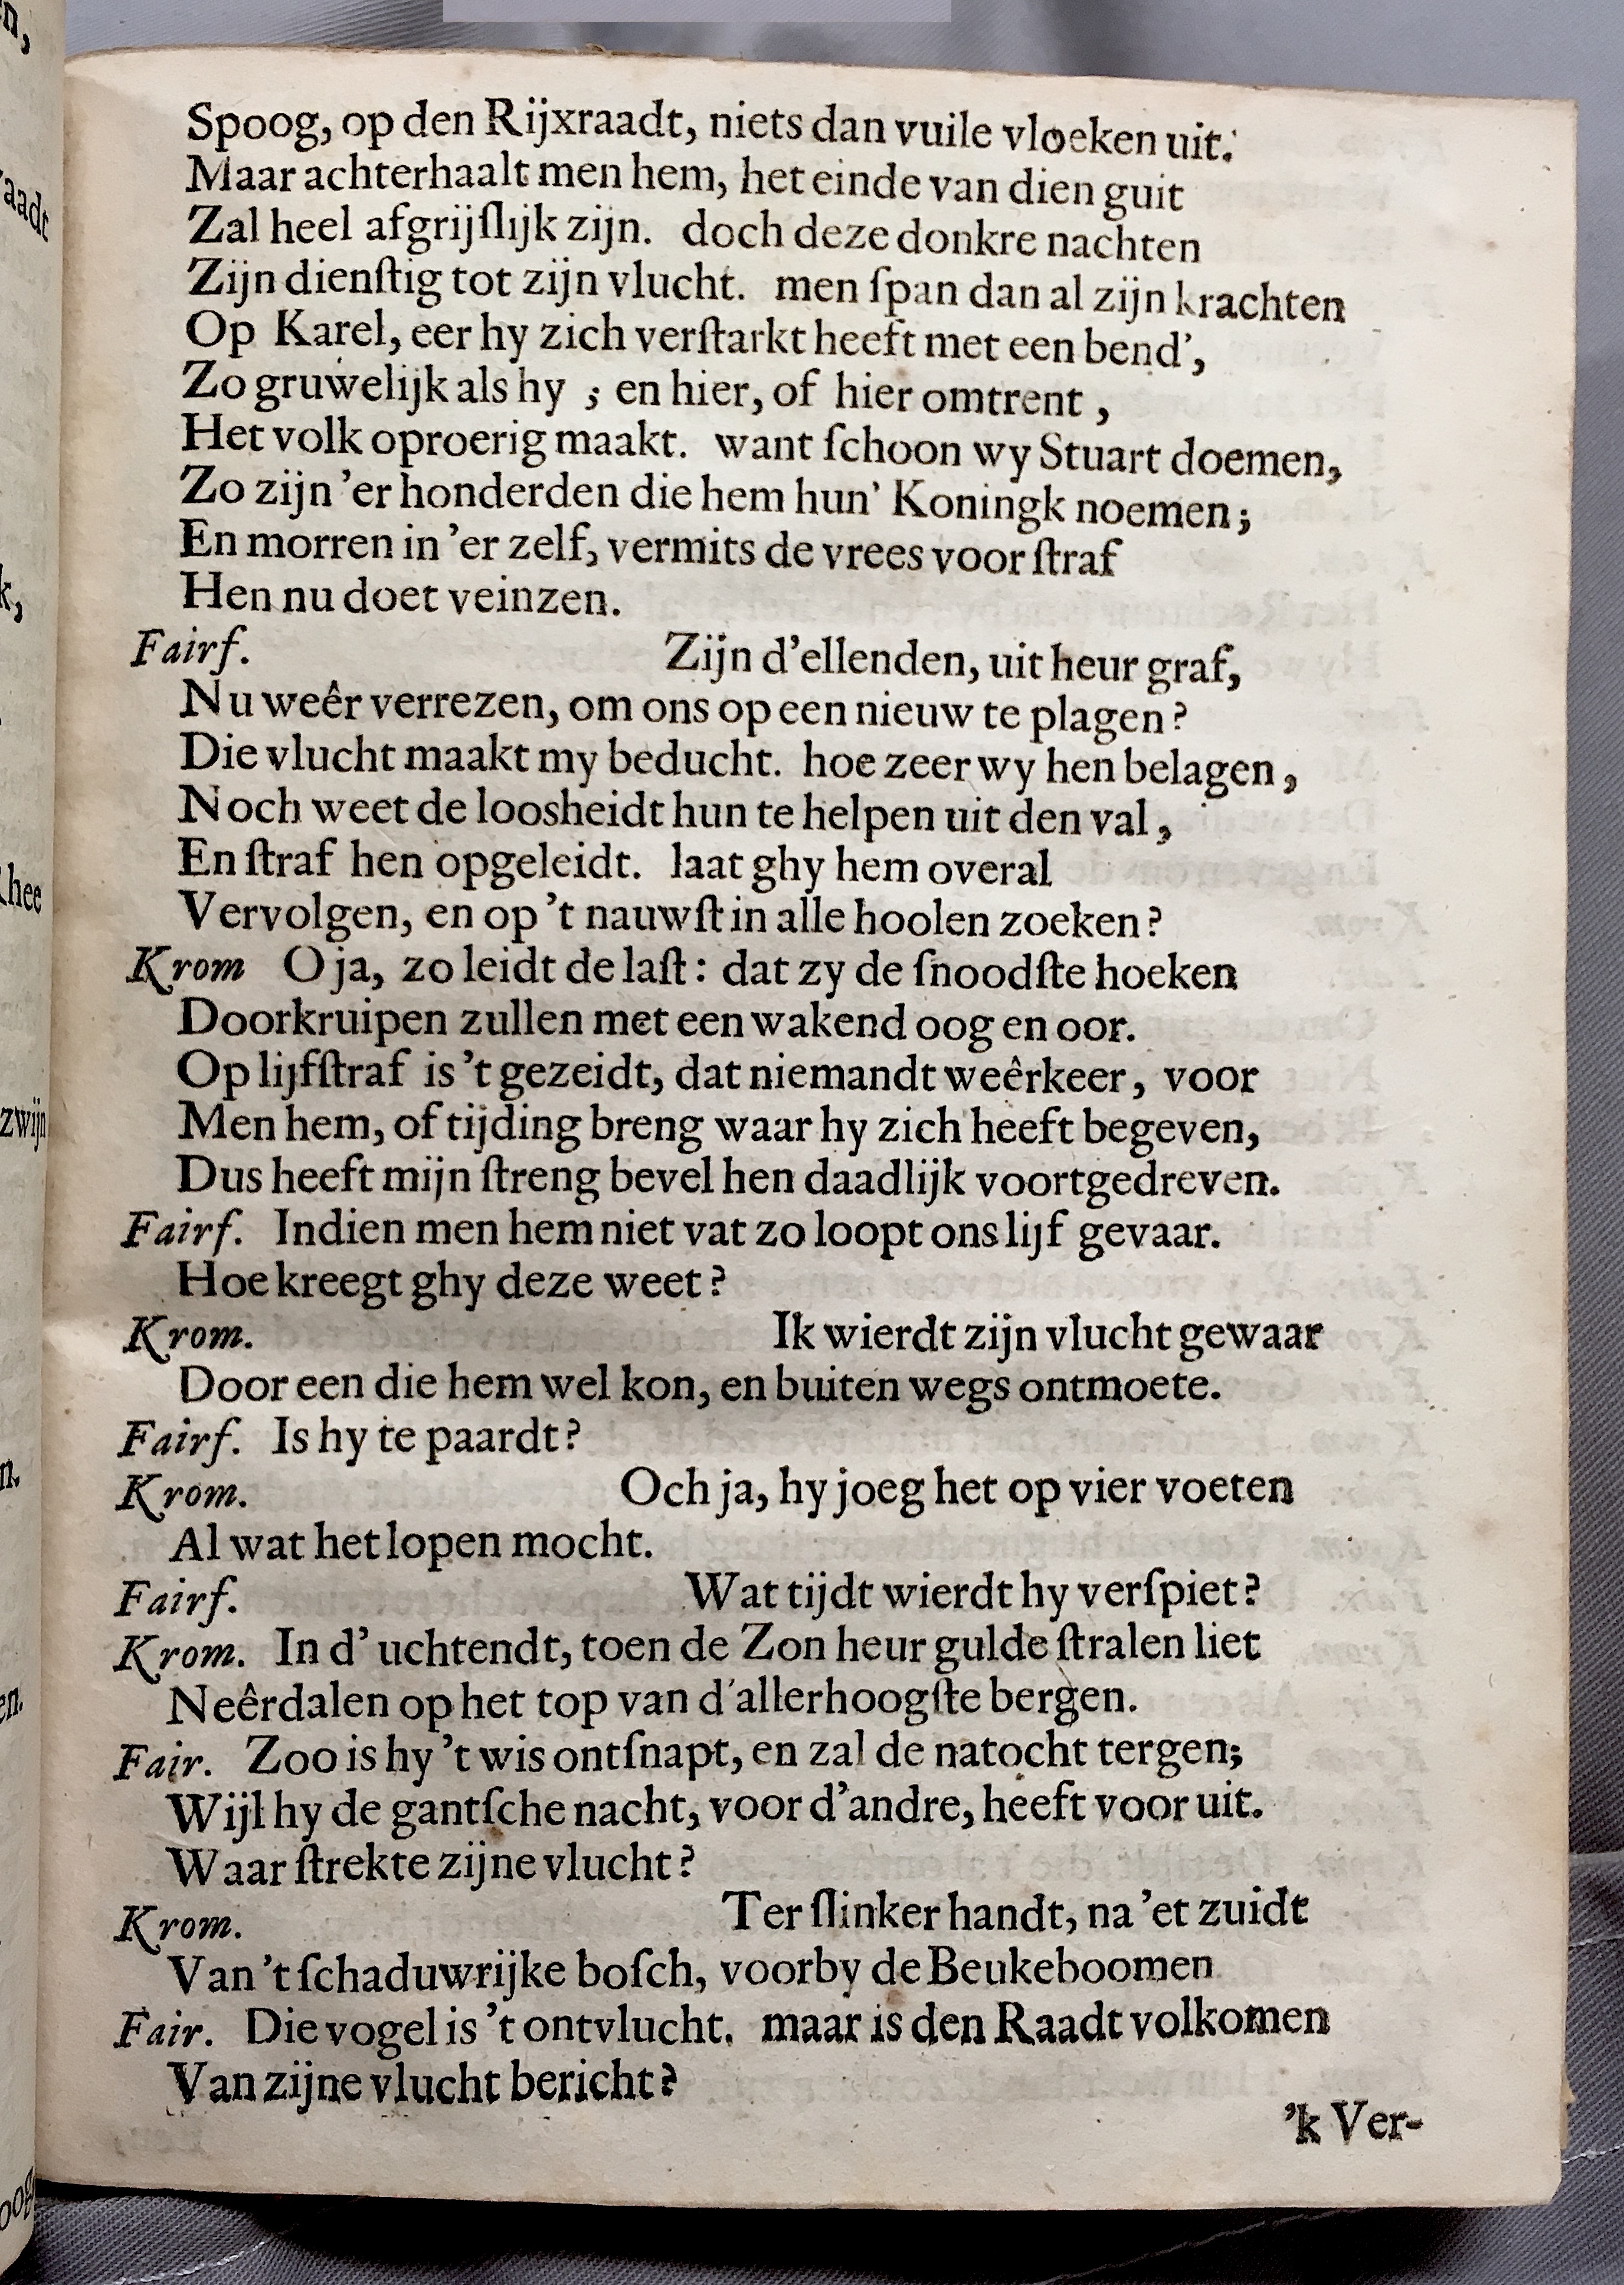 Spoog, op den Rijxraadt, niets dan vuile vloeken uit.
Maar achterhaalt men hem, het einde van dien guit
Zal heel afgrijſlijk zijn. doch deze donkre nachten
Zijn dienſtig tot zijn vlucht. men ſpan dan al zijn krachten
Op Karel, eer hy zich verſtarkt heeft met een bend',
Zo gruwelijk als hy ; en hier, of hier omtrent ,
Het volk oproerig maakt. want ſchoon wy Stuart doemen,
Zo zijn 'er honderden die hem hun' Koningk noemen;
En morren in 'er zelf, vermits de vrees voor ſtraf
Hen nu doet veinzen.
Fairf. Zijn d'ellenden, uit heur graf,
Nu weêr verrezen, om ons op een nieuw te plagen?
Die vlucht maakt my beducht. hoe zeer wy hen belagen,
Noch weet de loosheidt hun te helpen uit den val,
En ſtraf hen opgeleidt. laat ghy hem overal
Vervolgen, en op 't nauwſt in alle hoolen zoeken?
Krom O ja, zo leidt de laſt: dat zy de ſnoodſte hoeken
Doorkruipen zullen met een wakend oog en oor.
Op lijfſtraf is 't gezeidt, dat niemandt weêrkeer, voor
Men hem, of tijding breng waar hy zich heeft begeven,
Dus heeft mijn ſtreng bevel hen daadlijk voortgedreven.
Fairf. Indien men hem niet vat zo loopt ons lijf gevaar.
Hoe kreegt ghy deze weet?
Krom. Ik wierdt zijn vlucht gewaar
Door een die hem wel kon, en buiten wegs ontmoete.
Fairf. Is hy te paardt?
Krom. Och ja, hy joeg het op vier voeten
Al wat het lopen mocht.
Fairf. Wat tijdt wierdt hy verſpiet?
Krom. In d' uchtendt, toen de Zon heur gulde ſtralen liet
Neêrdalen op het top van d'allerhoogſte bergen.
Fair. Zoo is hy 't wis ontſnapt, en zal de natocht tergen;
Wijl hy de gantſche nacht, voor d'andre, heeft voor uit.
Waar ſtrekte zijne vlucht?
Krom. Ter ſlinker handt, na 'et zuidt
Van 't ſchaduwrijke boſch, voorby de Beukeboomen
Fair. Die vogel is 't ontvlucht. maar is den Raadt volkomen
Van zijne vlucht bericht?
'k Ver-